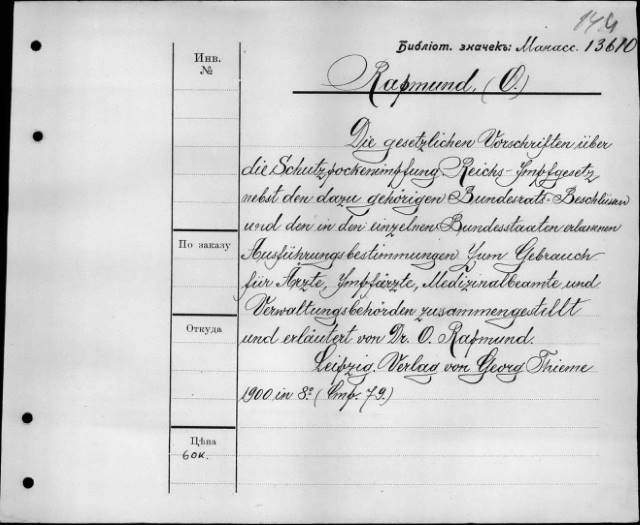 144
Библiот. значекъ: Манасс. 13610
Инв.
№
Rapmund, (O.)
Die gesetzlichen Vorschriften über
die Schutzpockenimpfung. Reichs-Impfgesetz
nebst den dazu gehörigen Bundesrats-Beschlüssen
und den in den einzelnen Bundesstaaten erlassenen
По заказу
Ausführungsbestimmungen Zum Gebrauch
für Ärzte, Impfärzte, Medizinalbeamte und
Verwaltungsbehörden zusammengestellt
Откуда
und erläutert von Dr. O. Rapmund.
Leipzig. Verlag von Georg Thieme
1900 in 8º (Стр. 79.)
Цѣна
60к.